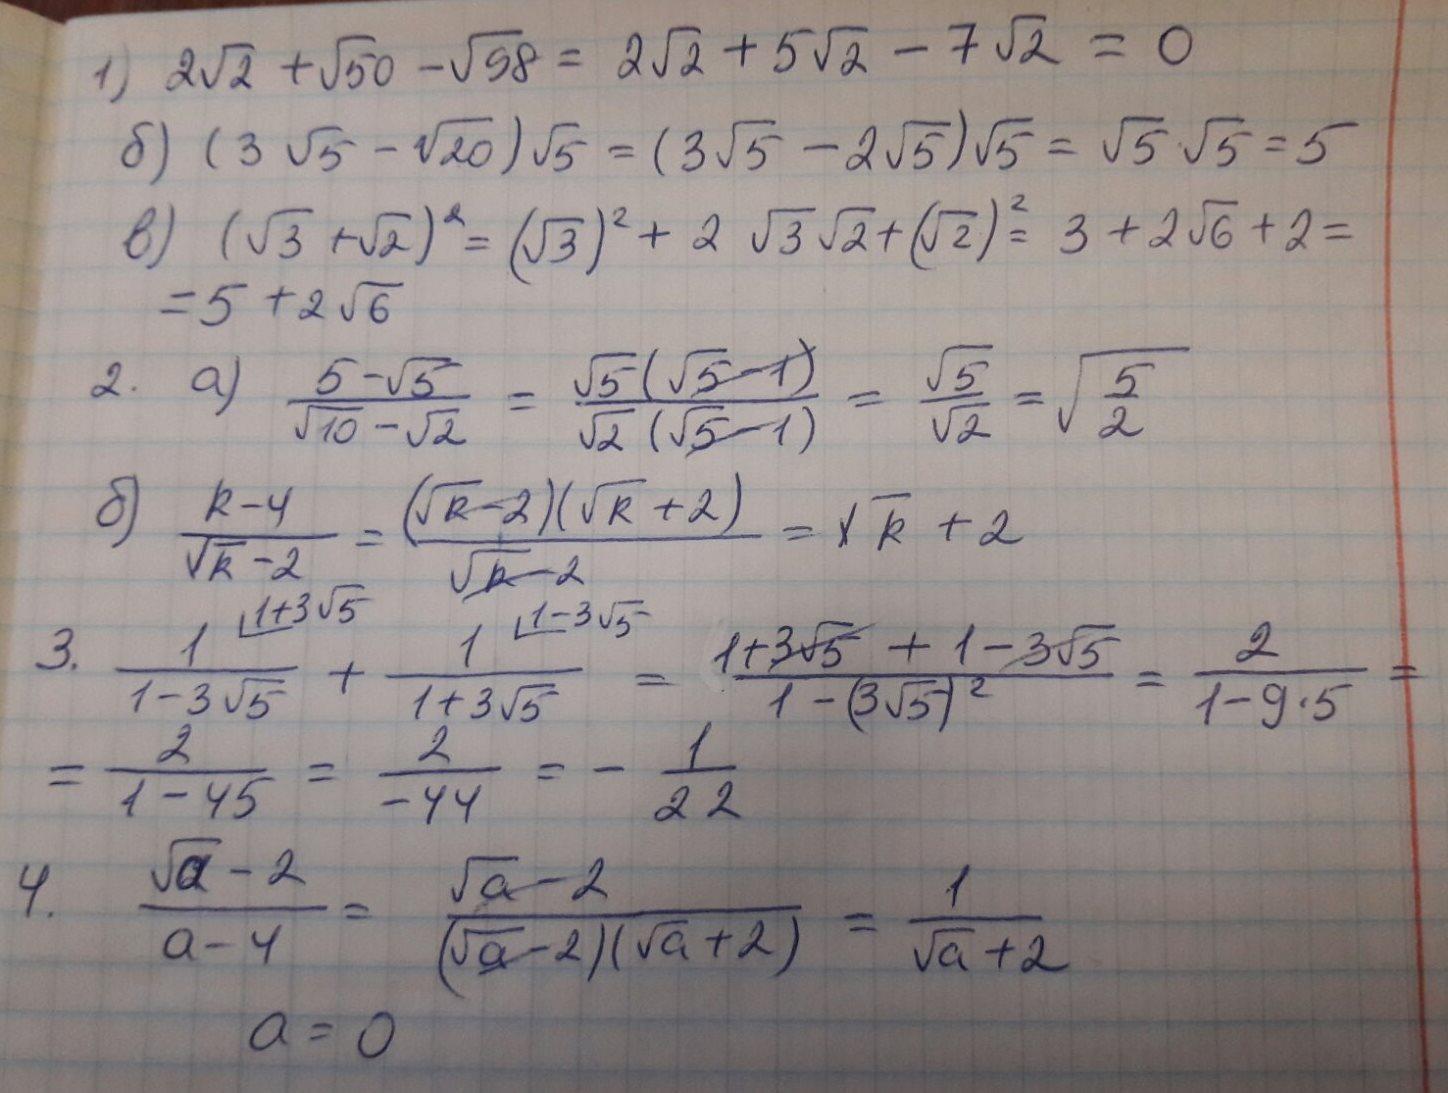 1) 2√2 + √50 - √98 = 2√2 + 5√2 - 7√2 = 0
б) (3√5 - √20)√5 = (3√5 - 2√5)√5 = √5·√5 = 5
в) (√3 + √2)² = (√3)² + 2 √3 √2 + (√2)² = 3 + 2√6 + 2 =
= 5 + 2√6
2. а) (5-√5)/(√10-√2) = (√5(√5-1))/(√2(√5-1)) = √5/√2 = √(5/2)
б) (k-4)/(√k-2) = ((√k-2)(√k+2))/(√k-2) = √k + 2
3. 1/(1-3√5) ⌊1+3√5 + 1/(1+3√5) ⌊1-3√5 = (1+3√5 + 1-3√5)/(1-(3√5)²) = 2/(1-9·5) =
= 2/(1-45) = 2/(-44) = - 1/22
4. (√a-2)/(a-4) = (√a-2)/((√a-2)(√a+2)) = 1/(√a+2)
a = 0